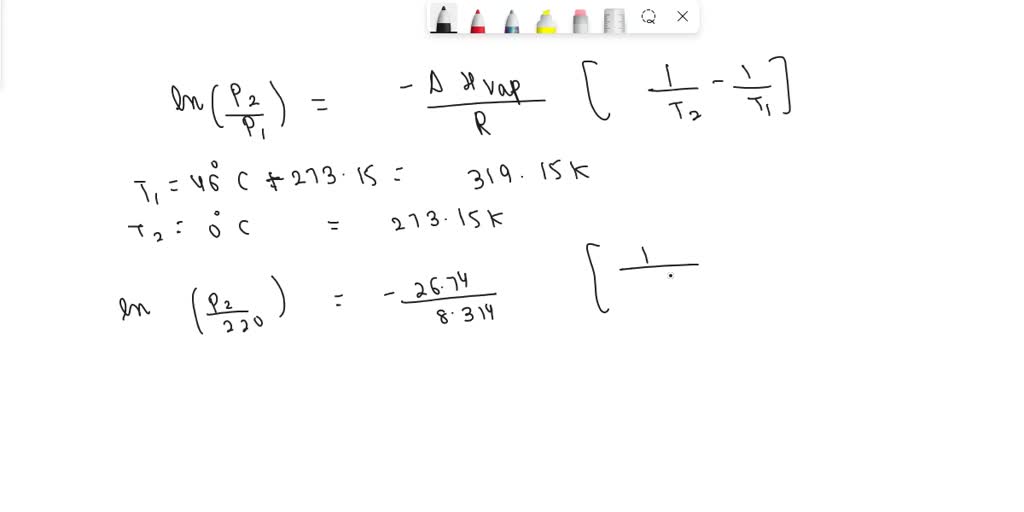 ln(P2/P1) = -ΔHvap/R [1/T2 - 1/T1]
T1 = 46°C + 273.15 = 319.15K
T2 = 0°C = 273.15K
ln (P2/220) = -26.74/8.314 [1/